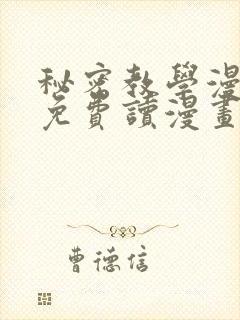 秘密教學漫
免費讀漫畫
曹德信